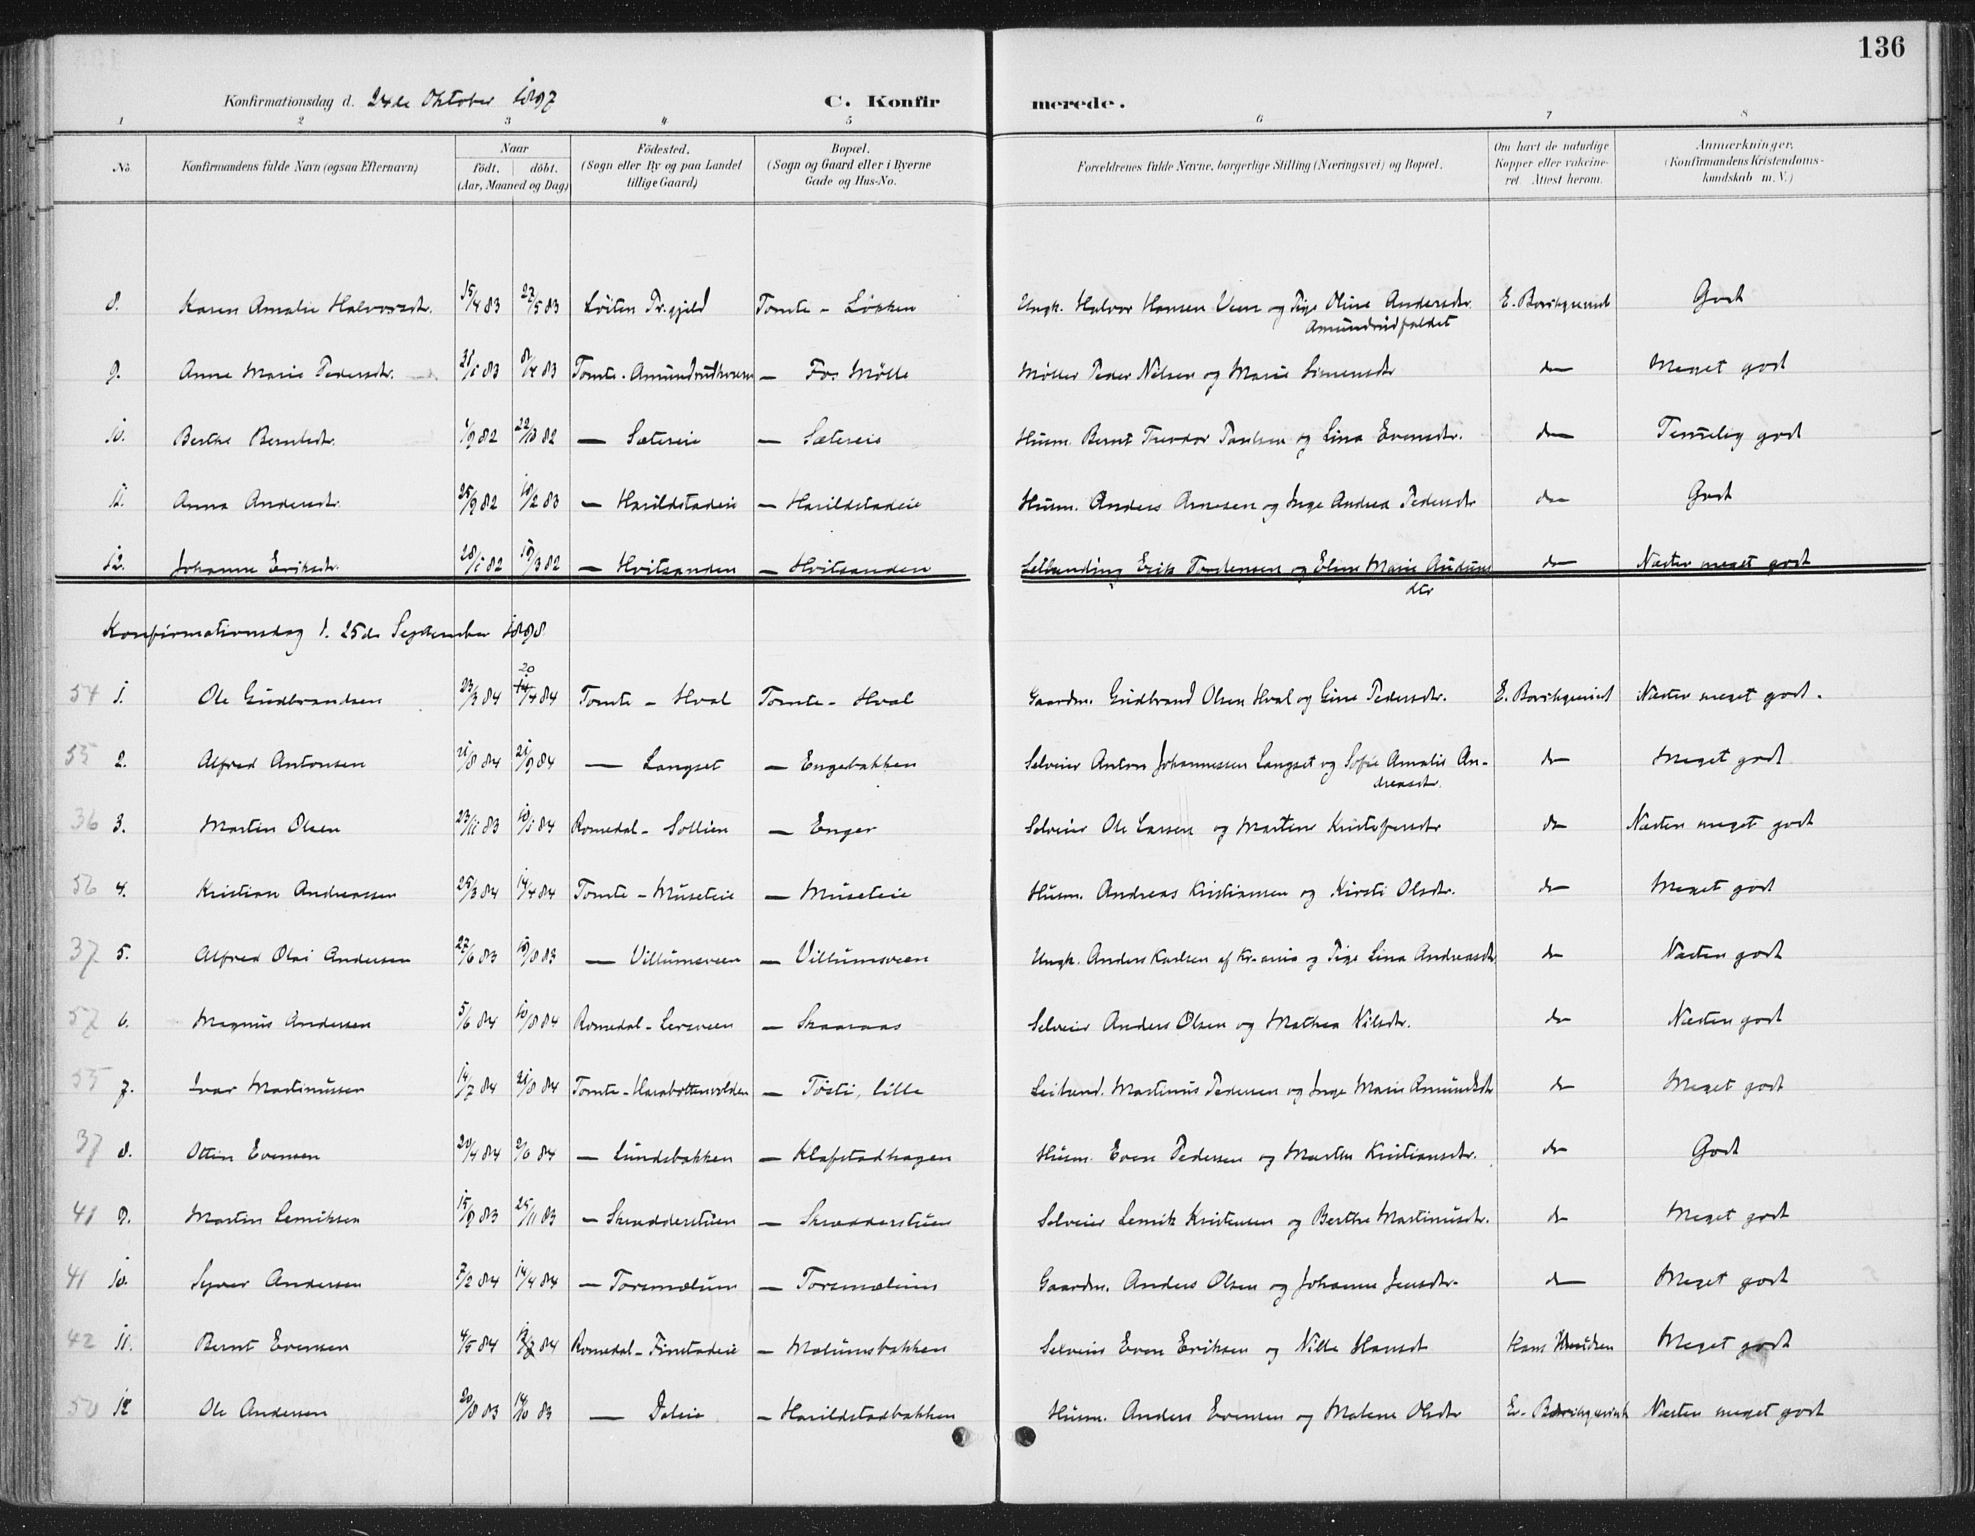 136
Konfirmationsdag d. 24de Oktober 1897 C. Konfirmerede.
1 2 3 4 5 6 7 8
No. Konfirmandens fulde Navn (ogsaa Efternavn) Naar födt. döbt. (Aar, Maaned og Dag) Födested. (Sogn eller By og paa Landet tillige Gaard) Bopæl. (Sogn og Gaard eller i Byerne Gade og Hus-No. Forældrenes fulde Navne, borgerlige Stilling (Næringsvei) og Bopæl. Om havt de naturlige Kopper eller vakcineret. Attest herom. Anmærkninger. (Konfirmandens Kristendomskundskab m. V.)
8. Karen Amalie Halvorsdtr. 15/4 83 27/5 83 Löiten Pr.gjeld Tomte - Løkken Ungk. Halvor Hansen Veen og Pige Oline Andersdtr. Amundrudfaldet E. Borchgrevink Godt
9. Anne Marie Pedersdtr. 31/1 83 8/4 83 Tomte - — Fos Mølle Møller Peder Nilsen og Marie Simensdtr do Meget godt
10. Berthe Berntsdtr. 1/9 82 22/10 82 — Sætereie — Sætereie Husm. Bernt Theodor Paulsen og Lina Evensdtr. do Temelig godt
11. Anna Andersdtr. 25/9 82 18/2 83 — Harildstadeie — Harildstadeie Husm. Anders Arnesen og Inge Andrea Pedersdtr do Godt
12. Johanne Eriksdtr. 28/1 82 19/3 82 — Hvitsanden — Hvitsanden Leilending Erik Tordensen og Eline Marie Audunsdtr do Næsten meget godt
Konfirmationsdag d. 25de September 1898
54 1. Ole Gudbrandsen 23/3 84 20/4 84 Tomte - Hval Tomte - Hval Gaardm. Gudbrand Olsen Hval og Gine Pedersdtr. E. Borchgrevink Næsten meget godt.
55 2. Alfred Antonsen 21/8 84 21/9 84 — Langset — Engebakken Selveier Anton Johannessen Langset og Sofie Amalie Andreasdtr. do Meget godt
36 3. Martin Olsen 23/11 83 10/1 84 Romedal - Sollien — Enger Selveier Ole Larsen og Martene Kristofersdtr do Næsten meget godt
56 4. Kristian Andreassen 25/3 84 14/4 84 Tomte - Museteie — Museteie Husm. Andreas Kristiansen og Kirsti Olsdtr. do Meget godt
37 5. Alfred Olai Andersen 27/6 83 19/8 83 — Villumsveen — Villumsveen Ungk. Anders Karlsen af Kr-ania og Pige Lina Andreasdtr do Næsten godt
57 6. Magnus Andersen 5/6 84 10/8 84 Romedal - — Skaaraas Selveier Anders Olsen og Mathea Nilsdtr. do Næsten godt
55 7. Ivar Martinussen 14/7 84 31/8 84 Tomte - — Tösti, lille Leilend. Martinus Pedersen og Inge Marie Amundsdtr do Meget godt
37 8. Otten Evensen 20/4 84 2/6 84 — Lundsbakken — Klafstadhagen Husm. Even Pedersen og Marthe Kristiansdtr. do Godt
41 9. Martin Lemiksen 15/9 83 25/11 83 — Skrædderstuen — Skrædderstuen Selveier Lemik Kristensen og Berthe Martinusdtr. do Meget godt
41 10. Syver Andersen 7/2 84 14/4 84 — Torsmælum — Torsmælum Gaardm. Anders Olsen og Johanne Jensdtr. do Meget godt
42 11. Bernt Evensen 4/5 84 84 Romedal - Finstadeie — Molumsbakken Selveier Even Eriksen og Nilla Hansdt Hans Knudsen Meget godt
50 12 Ole Andersen 20/8 83 14/10 83 — Daleie — Harildstadbakken Husm. Anders Evensen og Malene Olsdtr E. Borchgrevink Næsten meget godt